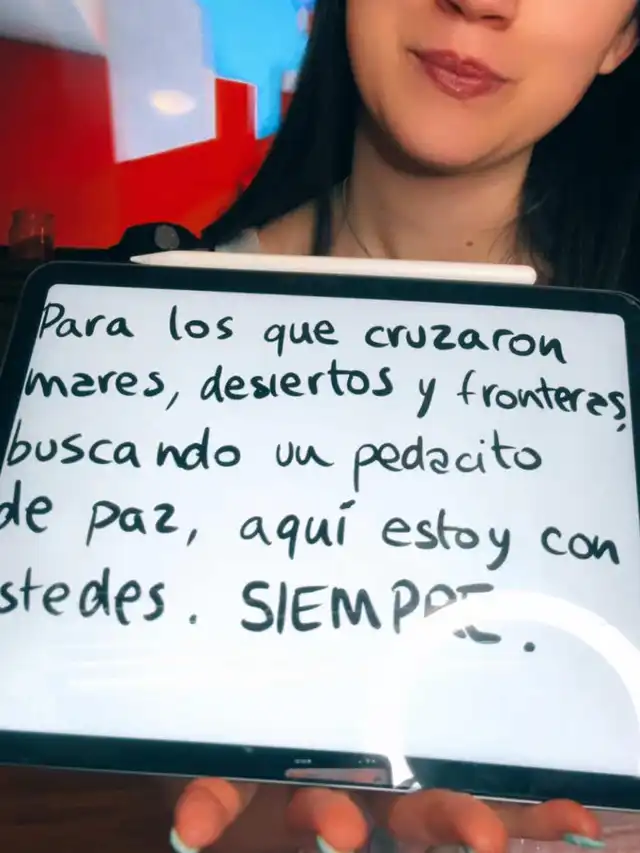 Para los que cruzaron
mares, desiertos y fronteras,
buscando un pedacito
de paz, aquí estoy con
stedes. SIEMPRE.